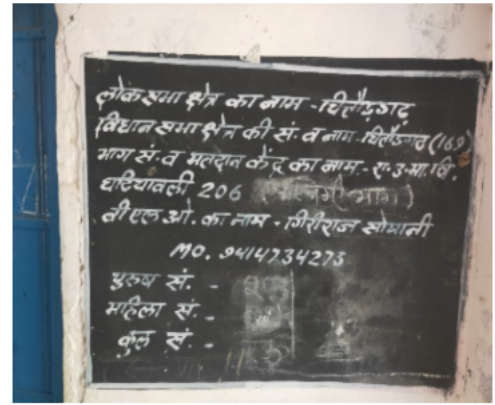 लोक सभा क्षेत्र का नाम - चित्तौड़गढ़
विधान सभा क्षेत्र की सं. व नाम - चित्तौड़गढ़ (169)
भाग सं. व मतदान केंद्र का नाम - रा. उ. मा. वि.
घटियावली 206 भाग)
बी एल ओ. का नाम - गिरीराज सोमानी
MO. 9414734273
पुरुष सं. -
महिला सं. -
कुल सं. -